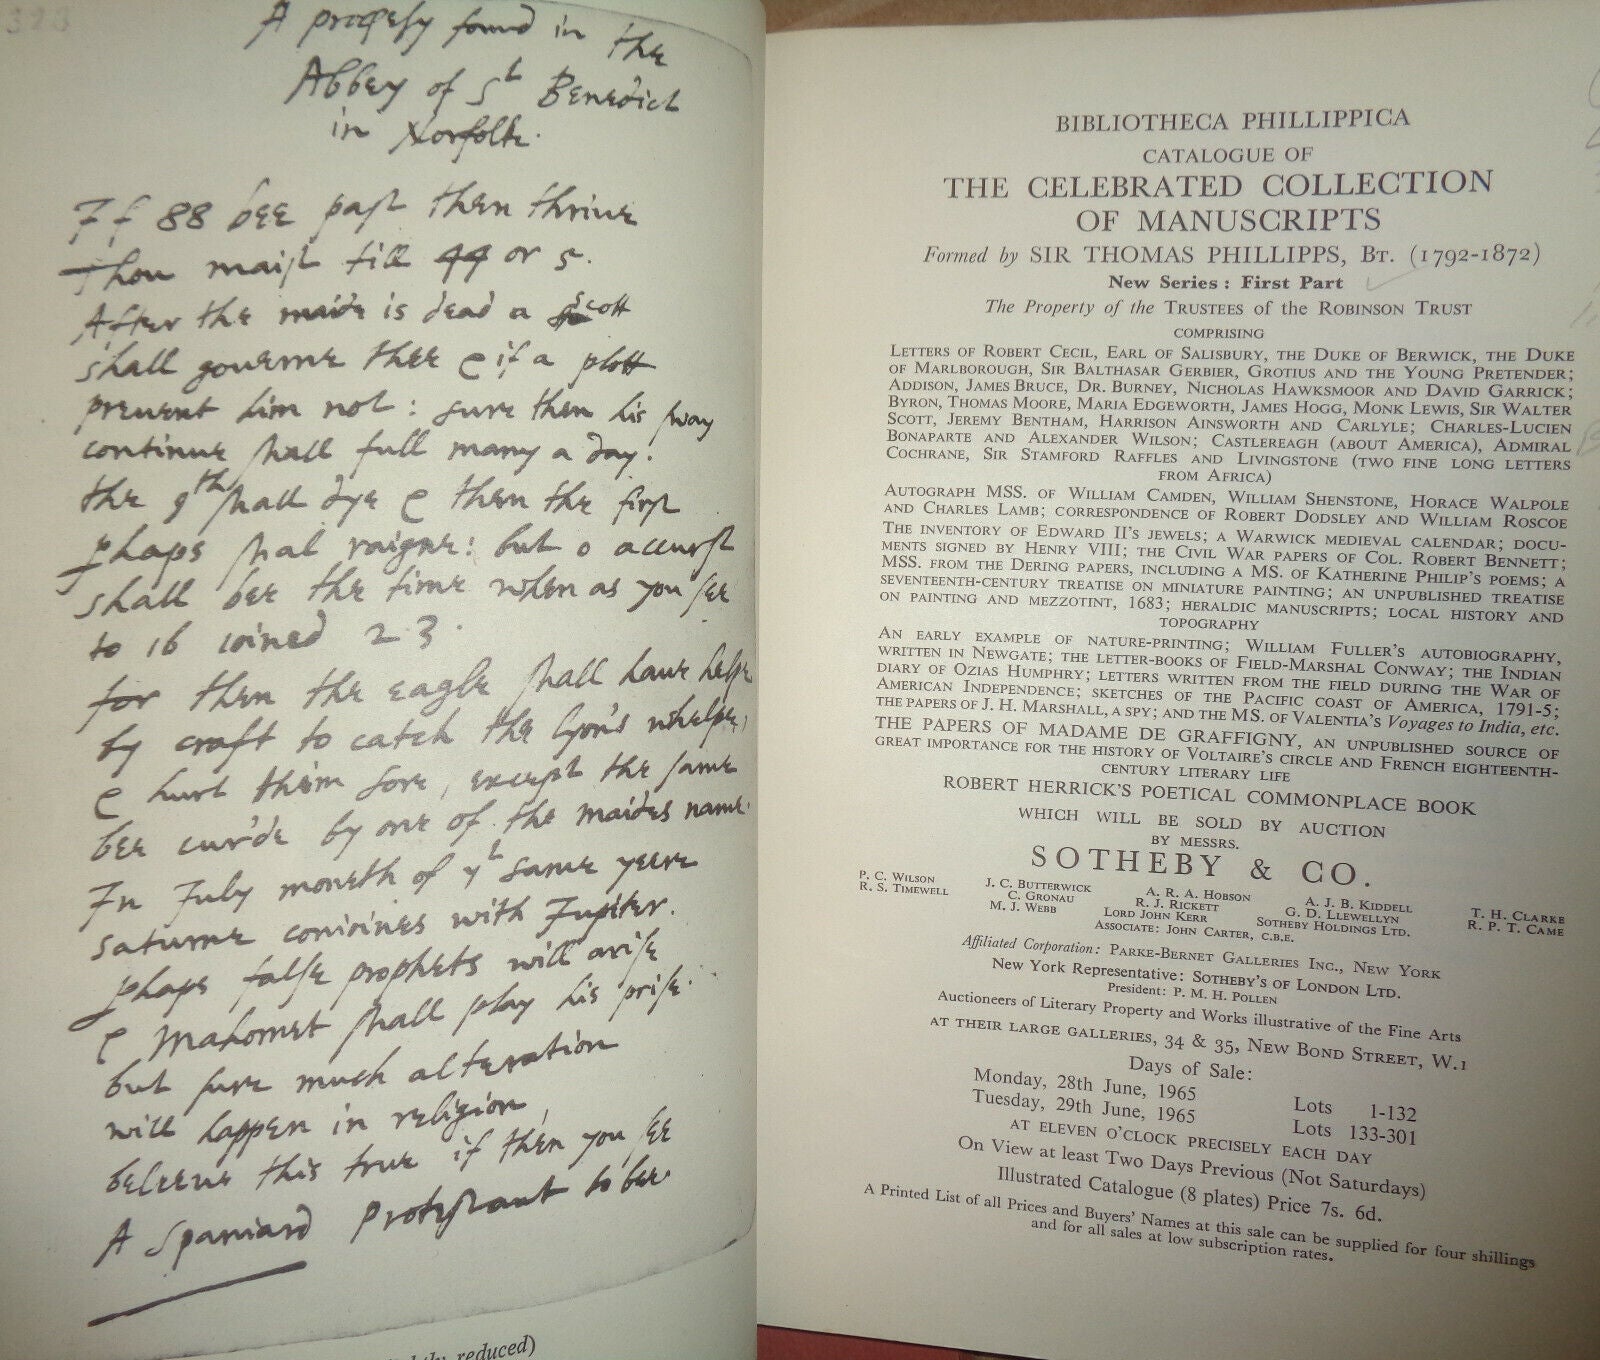 A propesy found in the
Abbey of St Benedict
in Norfolk.
If 88 bee past then thriue
Thou maist till 44 or 5.
After the maide is dead a Scott
shall gouerne thee & if a plott
preuent him not: sure then his sway
continue shall full many a day.
the 9th shall dye & then the first
phaps shal raigne: but o accurst
shall bee the time when as you see
to 16 ioined 23.
for then the eagle shall haue helpe
by craft to catch the Lyon's whelpe,
& hurt theim sore, except the same
bee cur'de by one of the maides name.
In July moneth of yt same yeere
saturne conioines with Jupiter.
phaps false prophets will arise
& Mahomet shall play his prise.
but sure much alteration
will happen in religion,
beleeue this true if then you see
A Spaniard Protestant to bee.
reduced)
BIBLIOTHECA PHILLIPPICA
CATALOGUE OF
THE CELEBRATED COLLECTION
OF MANUSCRIPTS
Formed by SIR THOMAS PHILLIPPS, BT. (1792-1872)
New Series: First Part
The Property of the TRUSTEES of the ROBINSON TRUST
COMPRISING
LETTERS OF ROBERT CECIL, EARL OF SALISBURY, THE DUKE OF BERWICK, THE DUKE
OF MARLBOROUGH, SIR BALTHASAR GERBIER, GROTIUS AND THE YOUNG PRETENDER;
ADDISON, JAMES BRUCE, DR. BURNEY, NICHOLAS HAWKSMOOR AND DAVID GARRICK;
BYRON, THOMAS MOORE, MARIA EDGEWORTH, JAMES HOGG, MONK LEWIS, SIR WALTER
SCOTT, JEREMY BENTHAM, HARRISON AINSWORTH AND CARLYLE; CHARLES-LUCIEN
BONAPARTE AND ALEXANDER WILSON; CASTLEREAGH (ABOUT AMERICA), ADMIRAL
COCHRANE, SIR STAMFORD RAFFLES AND LIVINGSTONE (TWO FINE LONG LETTERS
FROM AFRICA)
AUTOGRAPH MSS. OF WILLIAM CAMDEN, WILLIAM SHENSTONE, HORACE WALPOLE
AND CHARLES LAMB; CORRESPONDENCE OF ROBERT DODSLEY AND WILLIAM ROSCOE
THE INVENTORY OF EDWARD II'S JEWELS; A WARWICK MEDIEVAL CALENDAR; DOCU-
MENTS SIGNED BY HENRY VIII; THE CIVIL WAR PAPERS OF COL. ROBERT BENNETT;
MSS. FROM THE DERING PAPERS, INCLUDING A MS. OF KATHERINE PHILIP'S POEMS; A
SEVENTEENTH-CENTURY TREATISE ON MINIATURE PAINTING; AN UNPUBLISHED TREATISE
ON PAINTING AND MEZZOTINT, 1683; HERALDIC MANUSCRIPTS; LOCAL HISTORY AND
TOPOGRAPHY
AN EARLY EXAMPLE OF NATURE-PRINTING; WILLIAM FULLER'S AUTOBIOGRAPHY,
WRITTEN IN NEWGATE; THE LETTER-BOOKS OF FIELD-MARSHAL CONWAY; THE INDIAN
DIARY OF OZIAS HUMPHRY; LETTERS WRITTEN FROM THE FIELD DURING THE WAR OF
AMERICAN INDEPENDENCE; SKETCHES OF THE PACIFIC COAST OF AMERICA, 1791-5;
THE PAPERS OF J. H. MARSHALL, A SPY; AND THE MS. OF VALENTIA'S Voyages to India, etc.
THE PAPERS OF MADAME DE GRAFFIGNY, AN UNPUBLISHED SOURCE OF
GREAT IMPORTANCE FOR THE HISTORY OF VOLTAIRE'S CIRCLE AND FRENCH EIGHTEENTH-
CENTURY LITERARY LIFE
ROBERT HERRICK'S POETICAL COMMONPLACE BOOK
WHICH WILL BE SOLD BY AUCTION
BY MESSRS.
SOTHEBY & CO.
P. C. WILSON J. C. BUTTERWICK A. R. A. HOBSON A. J. B. KIDDELL T. H. CLARKE
R. S. TIMEWELL C. GRONAU R. J. RICKETT G. D. LLEWELLYN R. P. T. CAME
M. J. WEBB LORD JOHN KERR SOTHEBY HOLDINGS LTD.
ASSOCIATE: JOHN CARTER, C.B.E.
Affiliated Corporation: PARKE-BERNET GALLERIES INC., NEW YORK
New York Representative: SOTHEBY'S OF LONDON LTD.
President: P. M. H. POLLEN
Auctioneers of Literary Property and Works illustrative of the Fine Arts
AT THEIR LARGE GALLERIES, 34 & 35, NEW BOND STREET, W.1
Days of Sale:
Monday, 28th June, 1965 Lots 1-132
Tuesday, 29th June, 1965 Lots 133-301
AT ELEVEN O'CLOCK PRECISELY EACH DAY
On View at least Two Days Previous (Not Saturdays)
Illustrated Catalogue (8 plates) Price 7s. 6d.
A Printed List of all Prices and Buyers' Names at this sale can be supplied for four shillings
and for all sales at low subscription rates.